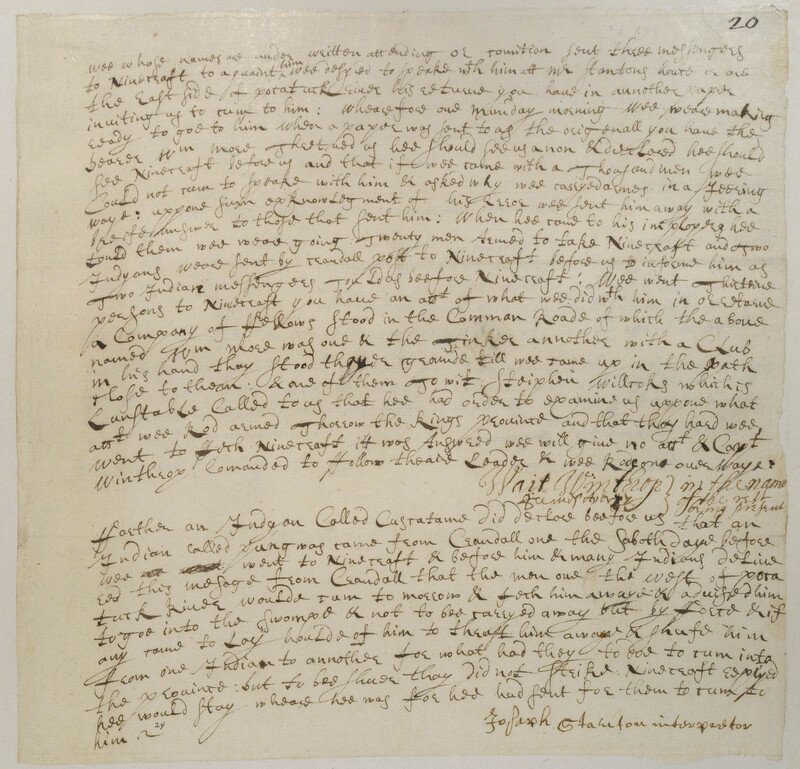 20
wee whose names are under written attending or comition sent three messengers
to Ninecraft to aquaint him wee desyed to speake wth him att mr stantons house or one
the East side of pocatuck River his returne you have in annother paper
inviting us to cum to him : whearefore one munday morning wee weare making
ready to goe to him when a paper was sent to us the origenall you have the
bearer Wm more thretned us hee should see us anon & declared hee should
see Ninecraft before us and that if wee came with a thousand men wee
Could not cum to speake with him & asked why wee carryed armes in a Jeering
waye : uppone sum acknowlegment of his Error wee sent him away with a
answer to those that sent him : when hee came to his imployers hee
tould them wee weare going twenty men Armed to take Ninecraft and two
Indyans weare sent by crandall post to Ninecraft before us to informe him as
two Indian messengers tould us beefore Ninecraft : wee went thirteene
persons to Ninecraft you have an att of what wee did wth him in or retarne
a Company of ffellows stood in the Comman Roade of which the above
named Wm more was one & the tinker annother with a Club
in his hand thay stood grounde till wee came up in the path
close to them : & one of them to wit Steiphen Willcoks which is
Cunstable Called to us that hee had order to examine us uppone what
att wee Rod armed thorrow the kings province and that thay hard wee
went to fech Ninecraft itt was Answred wee will give no att & Capt
Winthrop Comanded to ffollow theaire Leader & wee Rod one over waye :
Wait Winthrop in the name
of the rest
being present
ffarther an Indyan Called Cascatame did declare beefore us that an
Indian called pungwas came from Crandall one the Saboth daye before
wee went to Ninecraft & before him & many Indians delive
ered this mesage from Crandall that the men one the west of poca
tuck River woulde cum to morrow & fech him awaye & advised him
to goe into the swompe & not to bee carryed away but by force & if
any came to Lay houlde of him to thrast him away & shufe him
from one Indian to annother for what had they to doe to cum into
the province : but to bee shuer thay did not streike : Ninecraft replyed
hee would stay wheare hee was for hee had sent for them to cum to
him
Joseph Stanton interpretor